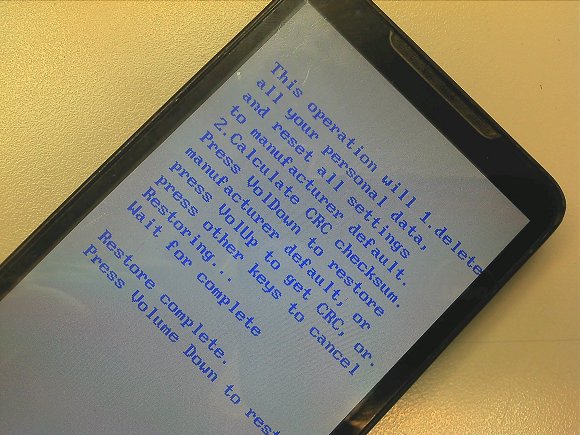 This operation will 1.delete
all your personal data,
and reset all settings
to manufacturer default.
2.Calculate CRC checksum.
Press VolDown to restore
manufacturer default, or
press VolUp to get CRC, or.
press other keys to cancel
Restoring...
Wait for complete
Restore complete.
Press Volume Down to rest